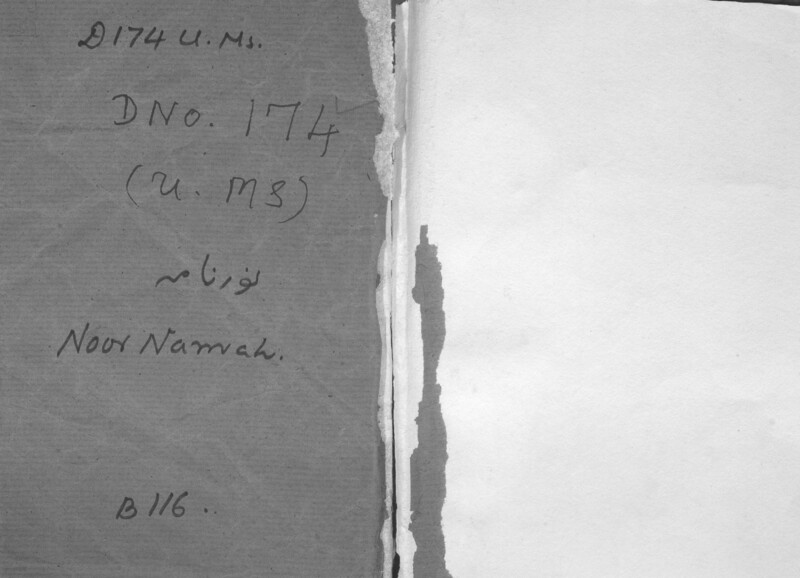 D174 U. Ms.
DNo. 174
(U. MS)
نورنامہ
Noor Namah.
B 116.